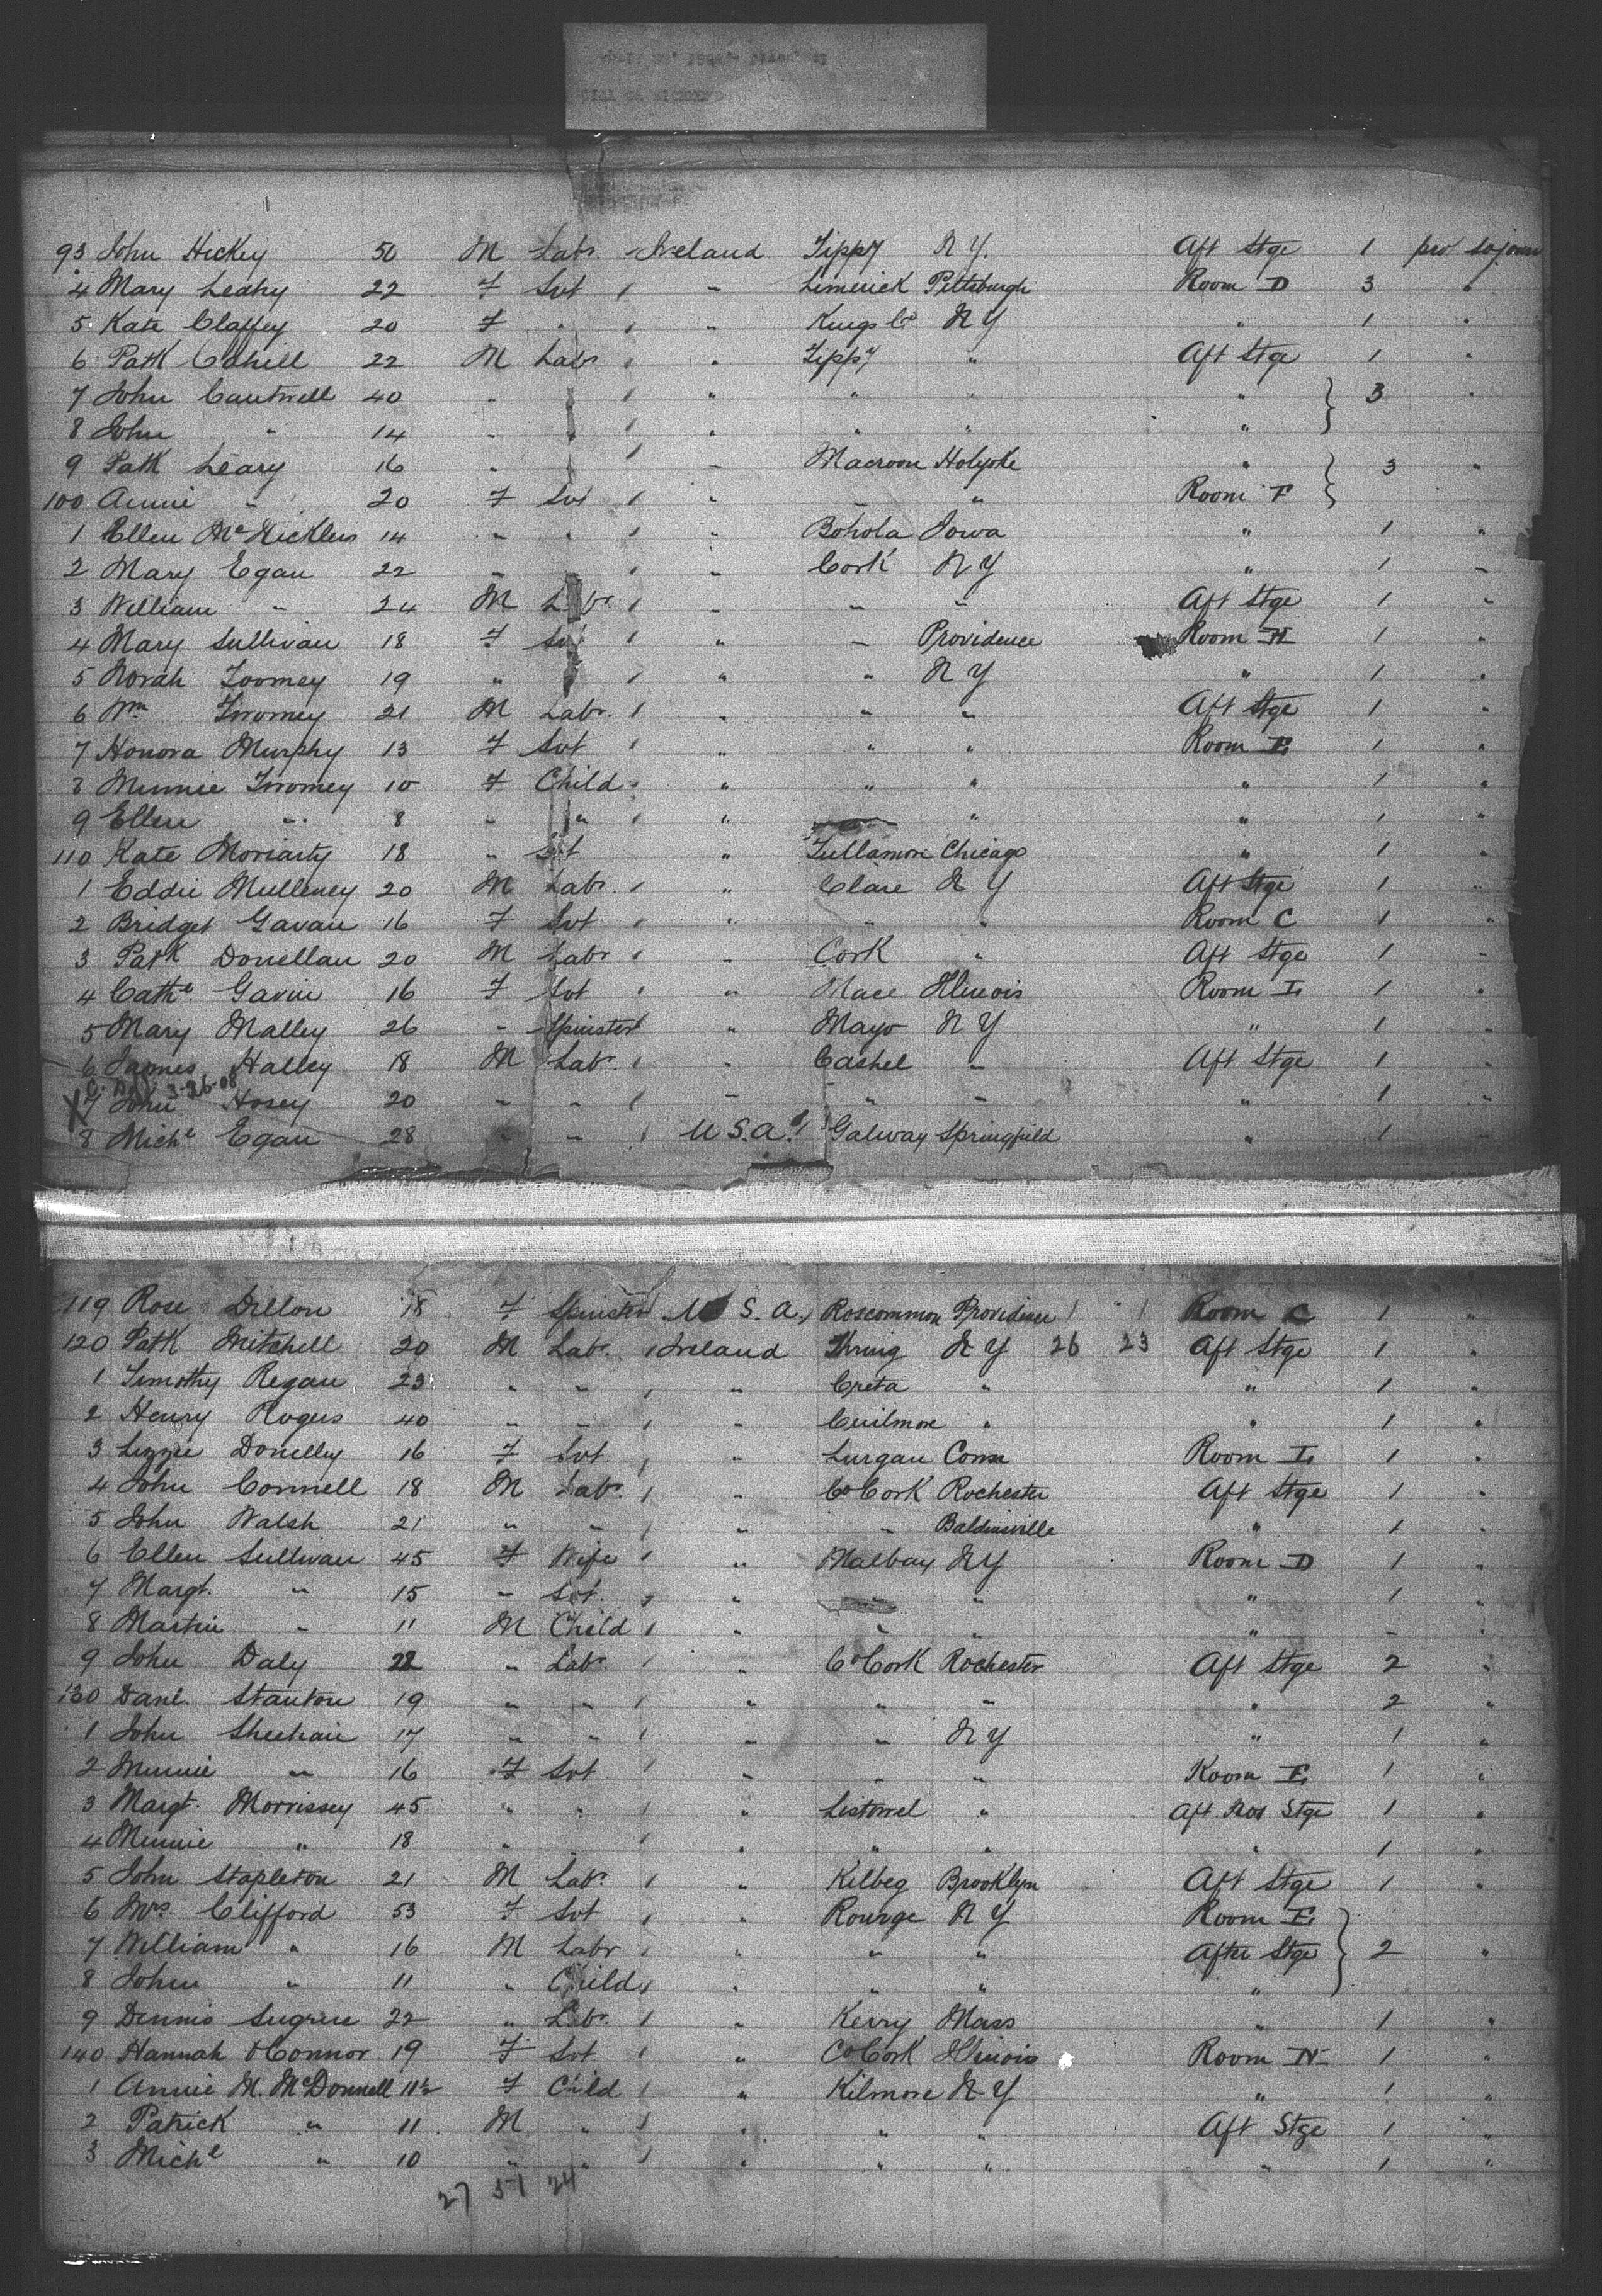 93 John Hickey 50 M Labr Ireland Tippy N Y. Aft Stge 1 pro sojourn
4 Mary Leahy 22 F Svt / " Limerick Pittsburgh Room D 3 "
5 Kate Claffey 20 F " / " Kings Co N Y " 1 "
6 Patk Cahill 22 M Labr / " Tippy " Aft Stge 1 "
7 John Cantwell 40 " / " " " " } 3 "
8 John " 14 " " / " " " "
9 Patk Leary 16 " / " Macroon Holyoke " } 3 "
100 Annie " 20 F Svt / " " " Room F
1 Ellen McNicklis 14 " " / " Bohola Iowa " 1 "
2 Mary Egan 22 " / " Cork N Y " 1 "
3 William " 24 M Labr. / " " " Aft Stge 1 "
4 Mary Sullivan 18 F Svt / " " Providence Room N 1 "
5 Norah Toomey 19 " / " " N Y " 1 "
6 Wm Twomey 21 M Labr. / " " " Aft Stge 1 "
7 Honora Murphy 13 F Svt / " " " Room E 1 "
8 Minnie Twomey 10 F Child " " " " 1 "
9 Ellen " 8 " " / " " " 1 "
110 Kate Moriarty 18 " Svt " Tullamore Chicago " 1 "
1 Eddie Mulleney 20 M Labr. / " Clare N Y Aft Stge 1 "
2 Bridget Gavan 16 F Svt / " " " Room C 1 "
3 Patk Donellan 20 M Labr / " Cork " Aft Stge 1 "
4 Cathe. Gavin 16 F Svt / " Mace Illinois Room I 1 "
5 Mary Malley 26 " Spinster " Mayo N Y " 1 "
6 James Halley 18 M Labr. / " Cashel " Aft Stge 1 "
3-26-08
X 7 John Hosey 20 " " / " " " " 1 "
8 Michl Egan 28 " " / U S.A. / Galway Springfield " 1 "
119 Rose Dillon 18 F Spinster U S. A, Roscommon Providence / / Room C 1 "
120 Patk Mitchell 20 M Labr. / Ireland N Y 26 23 Aft Stge 1 "
1 Timothy Regan 23 " " / " Creta " " 1 "
2 Henry Rogers 40 " " / " Cuilmore " " 1 "
3 Lizzie Donelley 16 F Svt / " Lurgan Conn Room I 1 "
4 John Connell 18 M Labr. / " Co Cork Rochester Aft Stge 1 "
5 John Walsh 21 " " / " " Baldinsville " 1 "
6 Ellen Sullivan 45 F Wife / " Malbay N Y Room D 1 "
7 Margt. " 15 " Svt. / " " " 1 "
8 Martin " 11 M Child / " " " " - "
9 John Daly 22 " Labr / " Co Cork Rochester Aft Stge 2 "
130 Danl. Stanton 19 " " / " " " " 2 "
1 John Sheehan 17 " " / " " N Y " 1 "
2 Minnie " 16 F Svt / " " " Room E 1 "
3 Margt. Morrissey 45 " " / " Listowel " Aft Stge 1 "
4 Minnie " 18 " / " " " " 1 "
5 John Stapleton 21 M Labr. / " Kilbeg Brooklyn Aft Stge 1 "
6 Mrs. Clifford 53 F Svt / " N Y Room E }
7 William " 16 M Labr / " " " After Stge } 2 "
8 John " 11 " Child / " " " "
9 Dennis Sugrue 22 " Labr. / " Kerry Mass " 1 "
140 Hannah O'Connor 19 F Svt. / " Co Cork Illinois Room N 1 "
1 Annie M. McDonnell 11½ F Child / " Kilmore N Y " 1 "
2 Patrick " 11 M " / " " " Aft Stge 1 "
3 Michl " 10 " " / " " " " 1 "
27 51 24